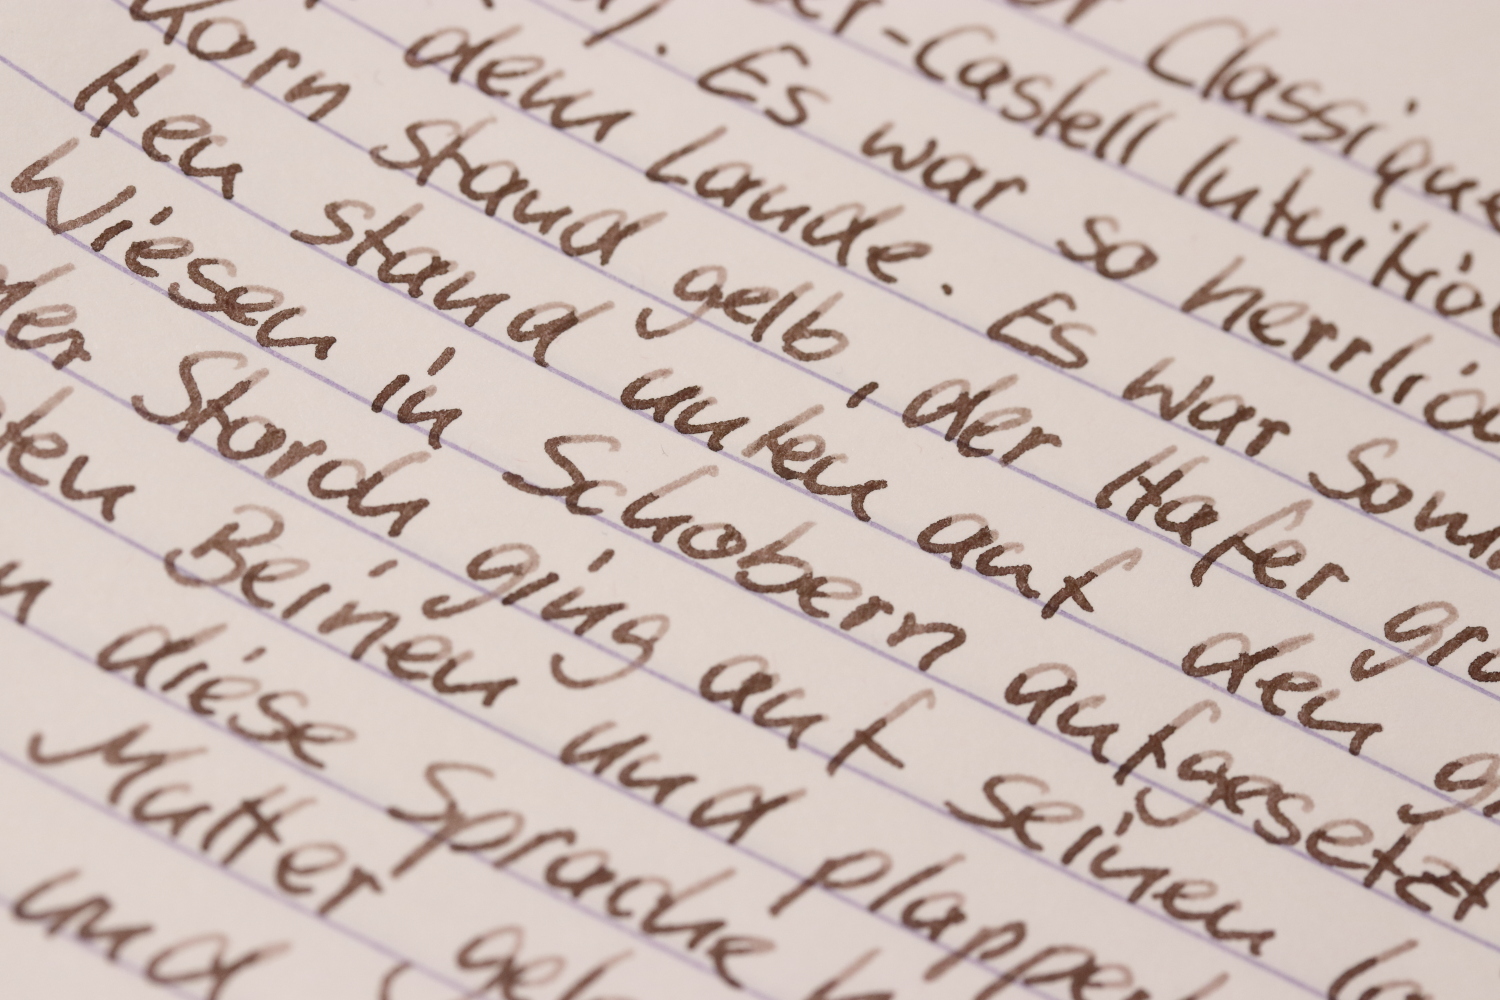 Classique
er-Castell Intuitio
). Es war so herrlic
dem Lande. Es war Som
Korn stand gelb, der Hafer grü
Heu stand unten auf den g
Wiesen in Schobern aufgesetzt
der Storch ging auf seinen la
ten Beinen und plapper
n diese Sprache
Mutter gel
und